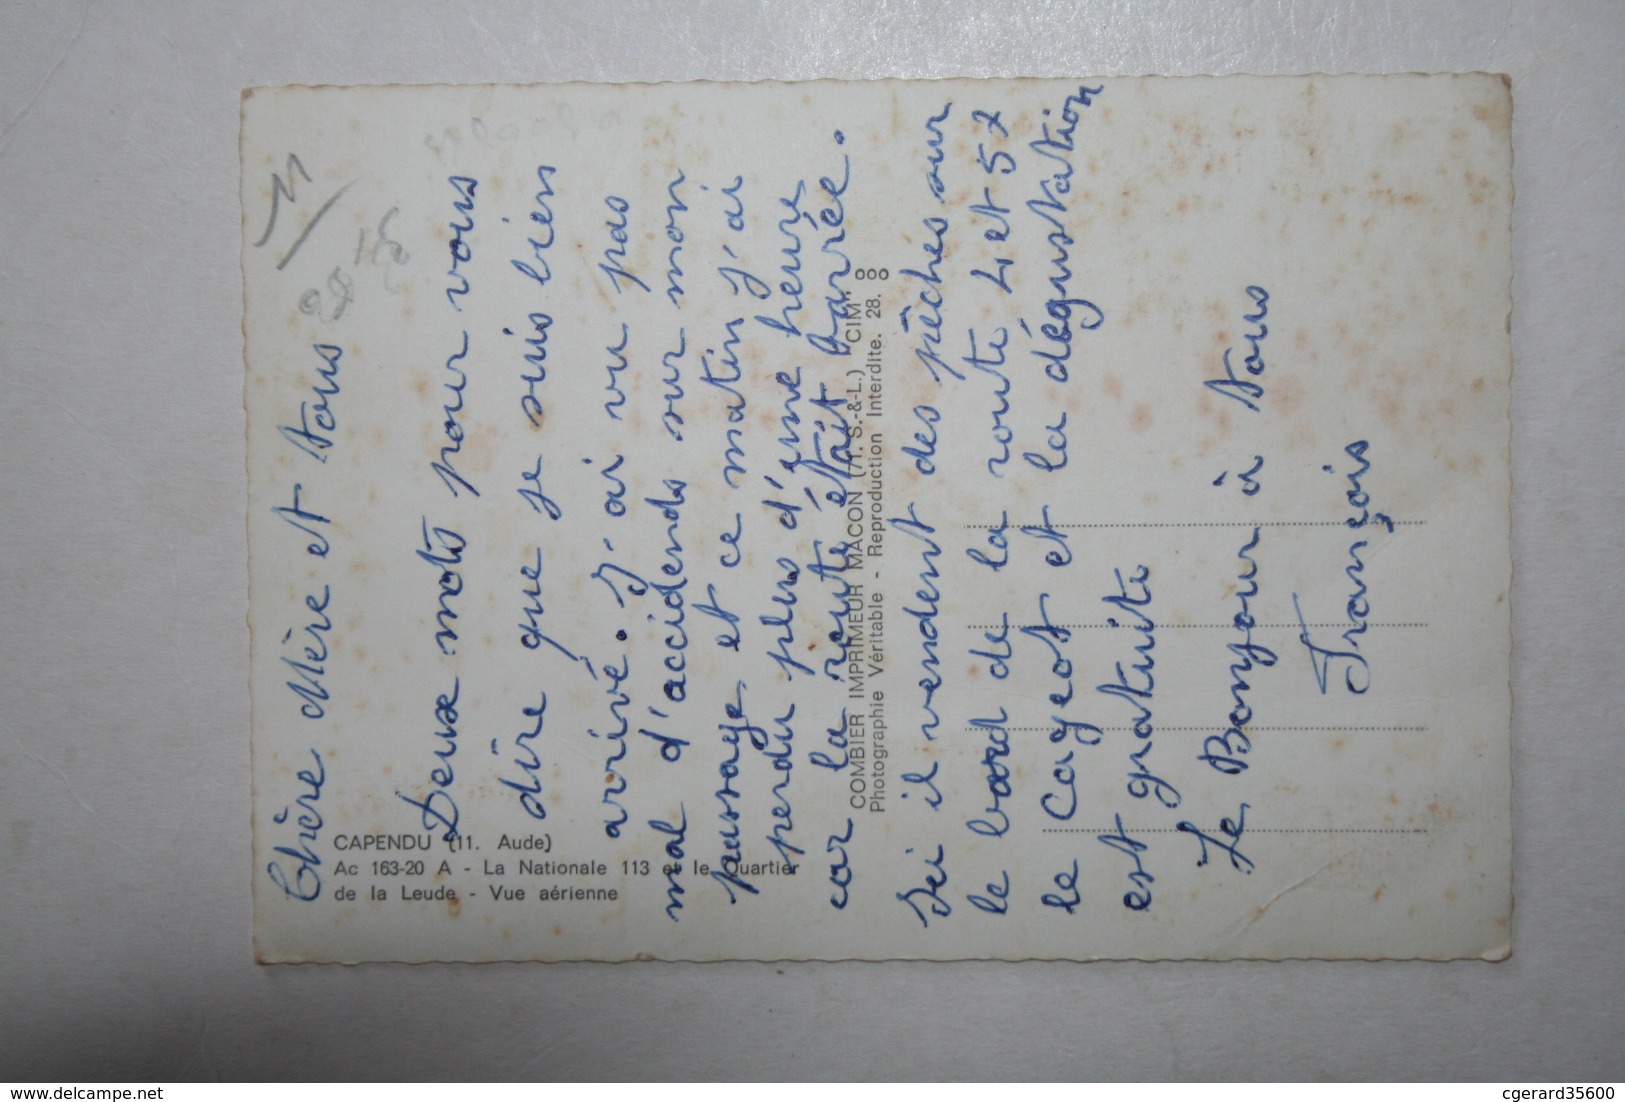 11
Chère Mère et tous
Deux mots pour vous
dire que je suis bien
arrivé. J'ai vu pas
mal d'accidends sur mon
passage et ce matin j'ai
perdu plus d'une heure
car la route était barrée.
Ici il vendent des pêches sur
le bord de la route 4 et 5F
le cayeot et la dégustation
est gratuite
Le Bonjour à tous
François
CAPENDU (11. Aude)
Ac 163-20 A - La Nationale 113 et le Quartier
de la Leude - Vue aérienne
COMBIER IMPRIMEUR MACON (71. S.-&-L.) "CIM"
Photographie Véritable - Reproduction Interdite. 28.
delcampe.net
cgerard35600